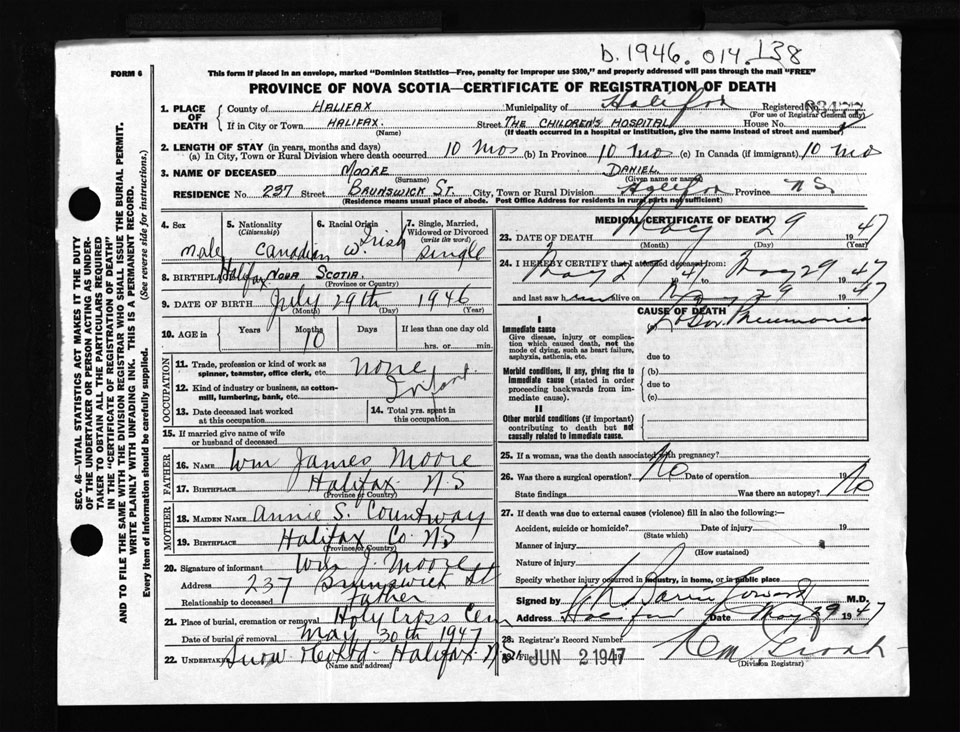 b. 1946. 014. 138
FORM 6
This form if placed in an envelope, marked "Dominion Statistics—Free, penalty for improper use $300," and properly addressed will pass through the mail "FREE"
PROVINCE OF NOVA SCOTIA—CERTIFICATE OF REGISTRATION OF DEATH
1. PLACE OF DEATH
County of HALIFAX Municipality of Halifax Registered No.
(For use of Registrar General only)
If in City or Town HALIFAX. Street THE CHILDREN'S HOSPITAL House No.
(Name) (If death occurred in a hospital or institution, give the name instead of street and number)
2. LENGTH OF STAY (in years, months and days)
(a) In City, Town or Rural Division where death occurred 10 mos (b) In Province 10 mo (c) In Canada (if immigrant) 10 mo
3. NAME OF DECEASED MOORE DANIEL
(Surname) (Given name or names)
RESIDENCE No. 237 Street BRUNSWICK ST. City, Town or Rural Division Halifax Province N.S.
(Residence means usual place of abode. Post Office Address for residents in rural parts not sufficient)
4. Sex
male
5. Nationality (Citizenship)
Canadian
6. Racial Origin
W Irish
7. Single, Married, Widowed or Divorced (write the word)
Single
8. BIRTHPLACE Halifax NOVA SCOTIA.
(Province or Country)
9. DATE OF BIRTH July 29th 1946
(Month) (Day) (Year)
10. AGE in Years Months Days If less than one day old
10 hrs. or min.
OCCUPATION
11. Trade, profession or kind of work as spinner, teamster, office clerk, etc. none
12. Kind of industry or business, as cotton-mill, lumbering, bank, etc. Infant
13. Date deceased last worked at this occupation
14. Total yrs. spent in this occupation
15. If married give name of wife or husband of deceased
FATHER
16. NAME Wm James Moore
17. BIRTHPLACE Halifax NS
(Province or Country)
MOTHER
18. MAIDEN NAME Annie S. Countway
19. BIRTHPLACE Halifax Co. NS
(Province or Country)
20. Signature of informant Wm J. Moore
Address 237 Brunswick St
Relationship to deceased Father
21. Place of burial, cremation or removal Holy Cross Cem
Date of burial or removal May 30th 1947
22. UNDERTAKER Snow Halifax N.S.
(Name and address)
MEDICAL CERTIFICATE OF DEATH
23. DATE OF DEATH May 29 1947
(Month) (Day) (Year)
24. I HEREBY CERTIFY that I attended deceased from:
May 2 1947 May 29 1947
and last saw him alive on May 29 1947
CAUSE OF DEATH
I
Immediate cause
Give disease, injury or complication which caused death, not the mode of dying, such as heart failure, asphyxia, asthenia, etc.
(a) Lobar Pneumonia
due to
Morbid conditions, if any, giving rise to immediate cause (stated in order proceeding backwards from immediate cause).
(b)
due to
(c)
II
Other morbid conditions (if important) contributing to death but not causally related to immediate cause.
25. If a woman, was the death associated with pregnancy?
26. Was there a surgical operation? No Date of operation 19
State findings Was there an autopsy? No
27. If death was due to external causes (violence) fill in also the following:—
Accident, suicide or homicide? Date of injury 19
(State which)
Manner of injury
(How sustained)
Nature of injury
Specify whether injury occurred in industry, in home, or in public place
Signed by M.D.
Address Halifax Date May 29 1947
28. Registrar's Record Number
29. Filed JUN 2 1947 19
(Division Registrar)
SEC. 46—VITAL STATISTICS ACT MAKES IT THE DUTY
OF THE UNDERTAKER OR PERSON ACTING AS UNDER-
TAKER TO OBTAIN ALL THE PARTICULARS REQUIRED
IN THE "CERTIFICATE OF REGISTRATION OF DEATH"
AND TO FILE THE SAME WITH THE DIVISION REGISTRAR WHO SHALL ISSUE THE BURIAL PERMIT.
WRITE PLAINLY WITH UNFADING INK. THIS IS A PERMANENT RECORD.
Every item of Information should be carefully supplied. (See reverse side for instructions.)